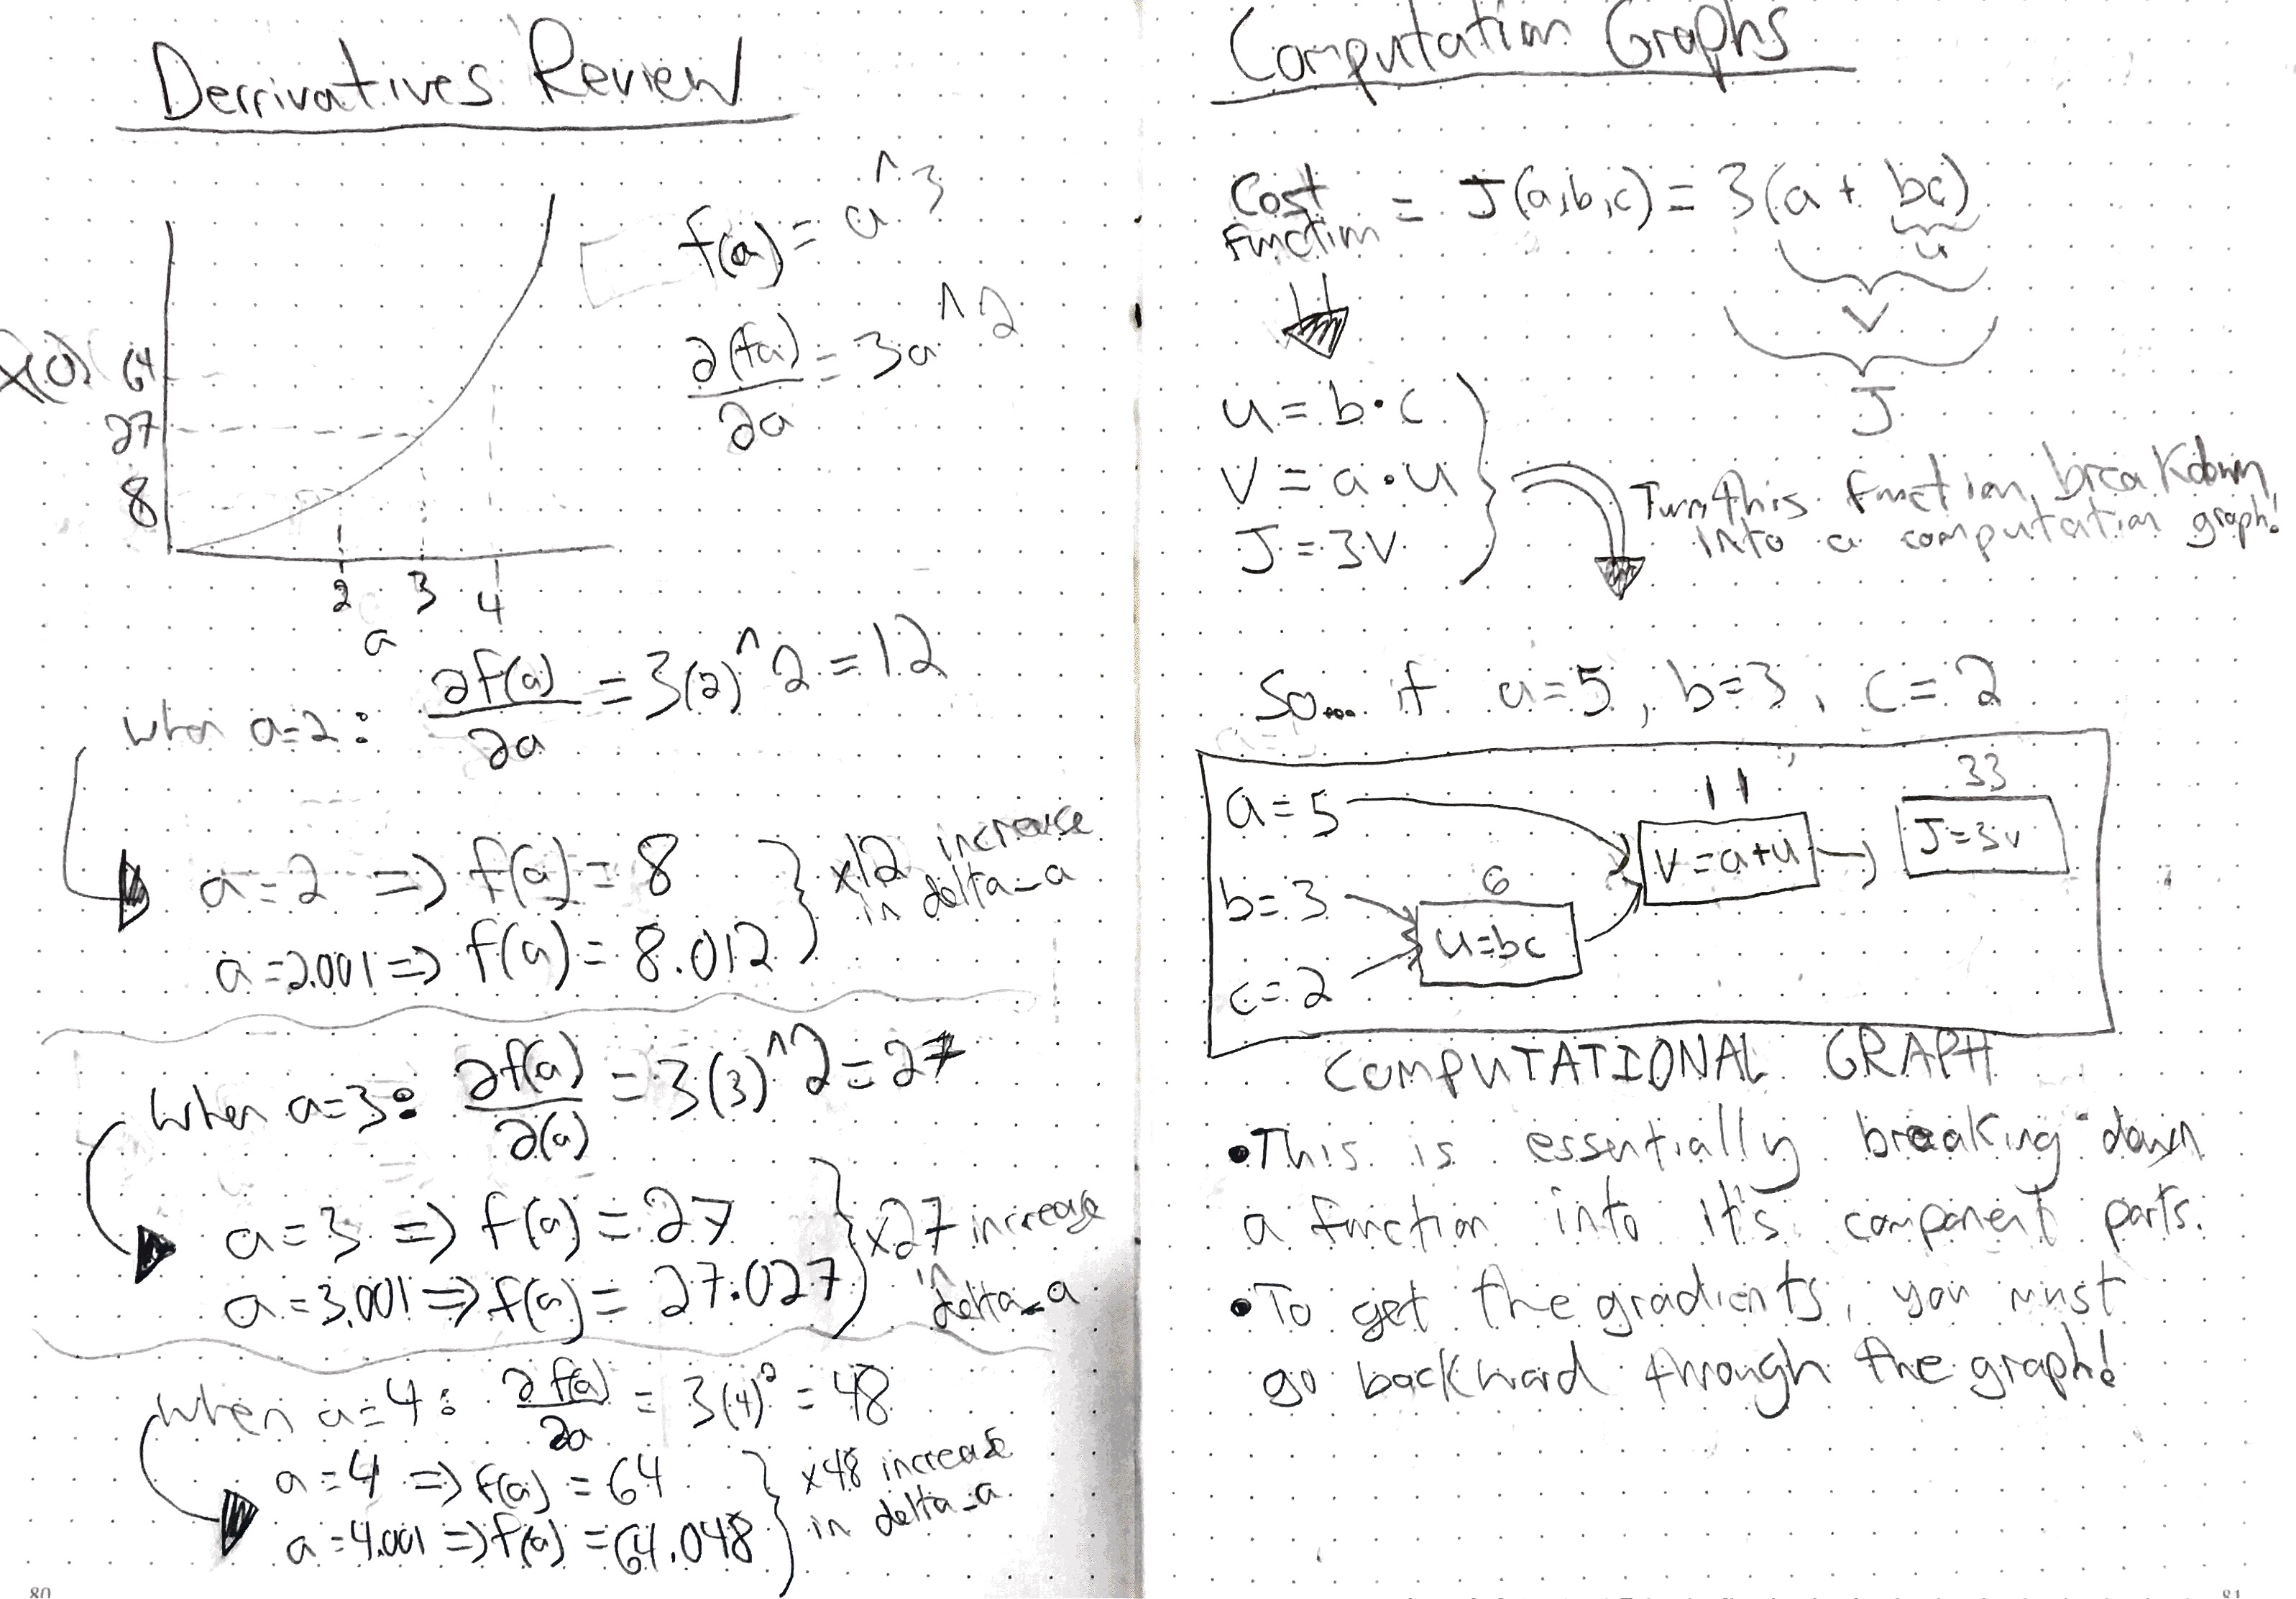 Derrivatives Review
f(a) = a^3
∂(fa)/∂a = 3a^2
f(a)
64
27
8
2 3 4
a
when a=2: ∂f(a)/∂a = 3(2)^2 = 12
a=2 => f(a) = 8
a=2.001 => f(a) = 8.012
x12 increase
in delta_a
when a=3: ∂f(a)/∂(a) = 3(3)^2 = 27
a=3 => f(a) = 27
a=3.001 => f(a) = 27.027
x27 increase
in
delta_a
when a=4: ∂f(a)/∂a = 3(4)² = 48
a=4 => f(a) = 64
a=4.001 => f(a) = 64.048
x48 increase
in delta_a
80
Computation Graphs
Cost
function = J(a,b,c) = 3(a + bc)
u
V
J
u = b•c
V = a•u
J = 3V
Turn this function breakdown
into a computation graph!
So... if a=5, b=3, c=2
a=5
b=3
c=2
6
u=bc
11
V=a+u
33
J=3v
COMPUTATIONAL GRAPH
•This is essentially breaking down
a function into it's component parts.
•To get the gradients, you must
go backward through the graph!
81